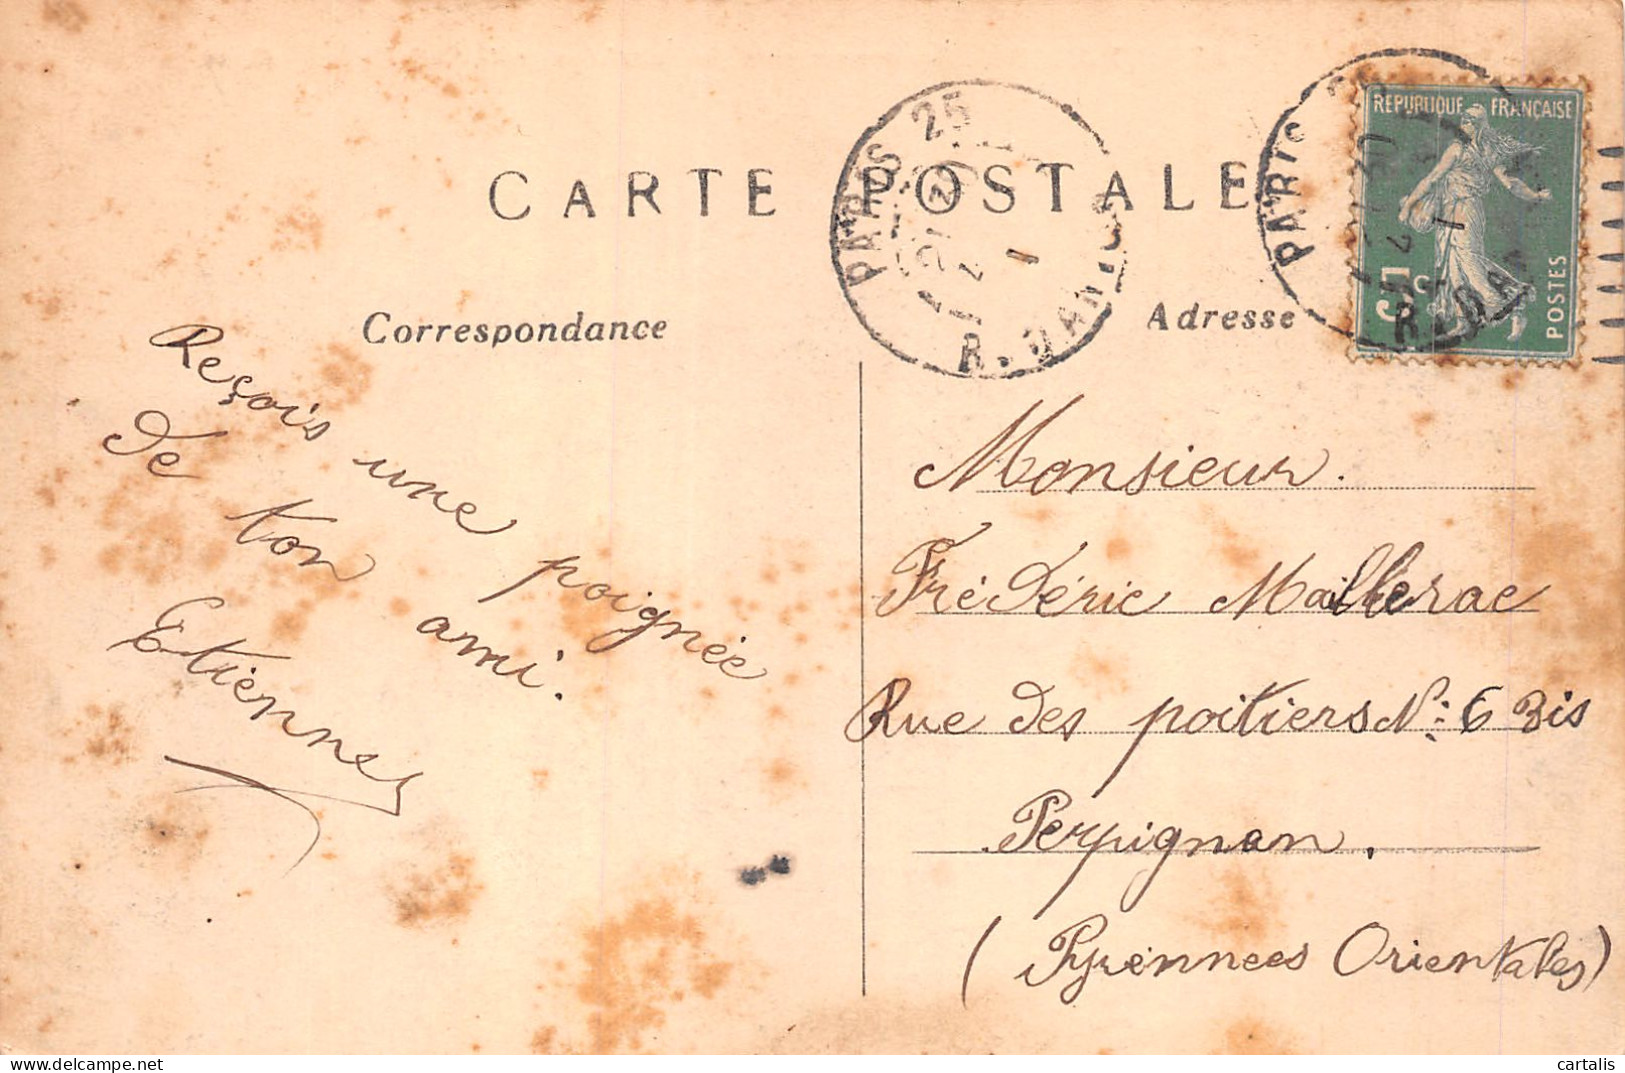 CARTE POSTALE
Correspondance
Adresse
PARIS 25
R. DANTON
PARIS
REPUBLIQUE FRANÇAISE
5c
POSTES
Reçois une poignée
de ton ami.
Etienne
Monsieur.
Frédéric Maillerac
Rue des poitiers N: 6 Bis
Perpignan.
(Pyrennees Orientales)
cartalis